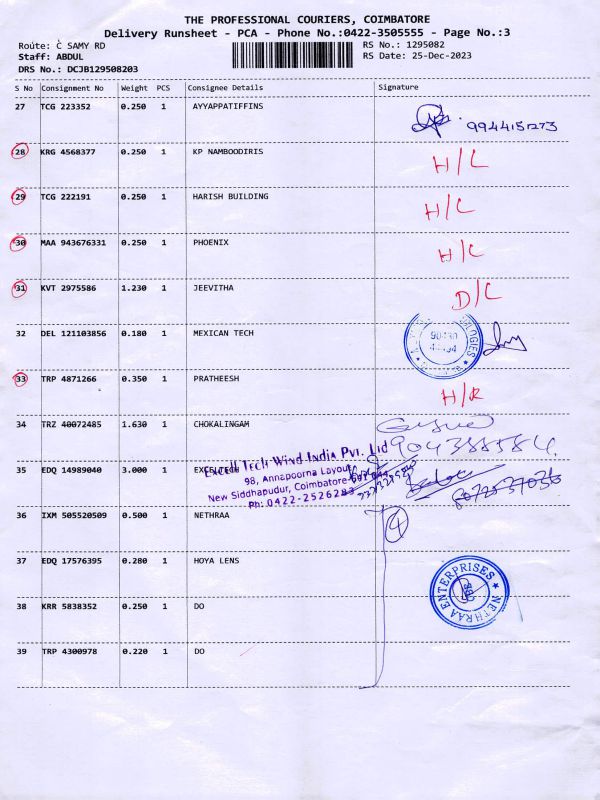 THE PROFESSIONAL COURIERS, COIMBATORE
Delivery Runsheet - PCA - Phone No.:0422-3505555 - Page No.:3
Route: C SAMY RD
RS No.: 1295082
Staff: ABDUL
RS Date: 25-Dec-2023
DRS No.: DCJB129508203
S No Consignment No Weight PCS Consignee Details Signature
27 TCG 223352 0.250 1 AYYAPPATIFFINS
9944151273
28 KRG 4568377 0.250 1 KP NAMBOODIRIS H/C
29 TCG 222191 0.250 1 HARISH BUILDING H/C
30 MAA 943676331 0.250 1 PHOENIX H/C
31 KVT 2975586 1.230 1 JEEVITHA D/C
32 DEL 121103856 0.180 1 MEXICAN TECH
33 TRP 4871266 0.350 1 PRATHEESH H/R
34 TRZ 40072485 1.630 1 CHOKALINGAM
904388584
35 EDQ 14989040 3.000 1
Excell Tech Wind India Pvt. Ltd
98, Annapoorna Layout,
New Siddhapudur, Coimbatore-641 044.
Ph: 0422-2526283
36 IXM 505520509 0.500 1 NETHRAA 4
37 EDQ 17576395 0.280 1 HOYA LENS
NETHRAA ENTERPRISES
38 KRR 5838352 0.250 1 DO
39 TRP 4300978 0.220 1 DO